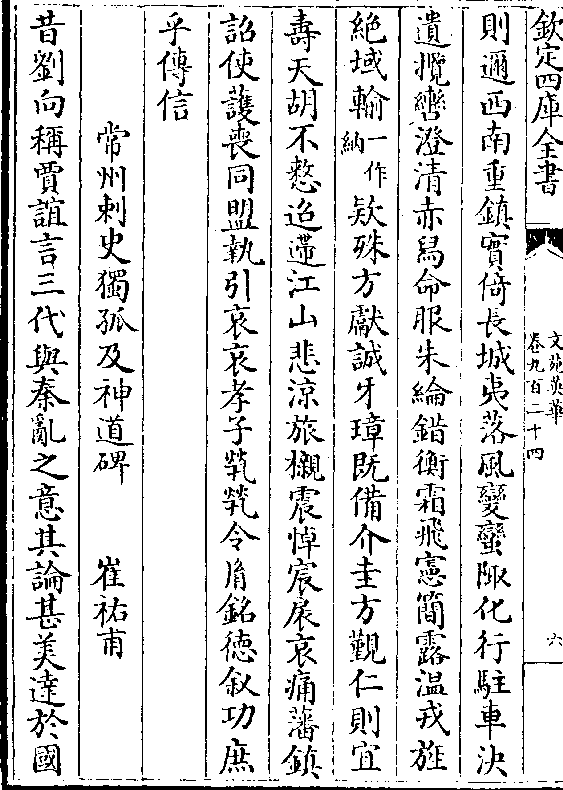 欽定四庫全書
文苑英華
卷九百二十四
六
則邇西南重鎮實倚長城夷落風變蠻陬化行駐車決
遺攬轡澄清赤舄命服朱綸錯衡霜飛憲簡露温戎旌
絶域輸一作納欵殊方獻誠牙璋既備介圭方觀仁則宜
壽天胡不憗迢遰江山悲涼旅櫬震悼宸扆哀痛藩鎮
詔使䕶喪同盟執引哀哀孝子煢煢令𦙍銘德叙功庶
乎傳信
常州刺史獨孤及神道碑
崔祐甫
昔劉向稱賈誼言三代與秦亂之意其論甚美達於國